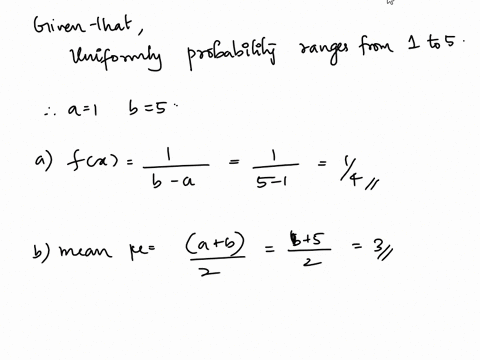 Given that,
Uniformly probability ranges from 1 to 5.
∴ a=1 b=5.
a) f(x) = 1/(b-a) = 1/(5-1) = 1/4 //
b) mean μ = (a+b)/2 = 1+5/2 = 3//